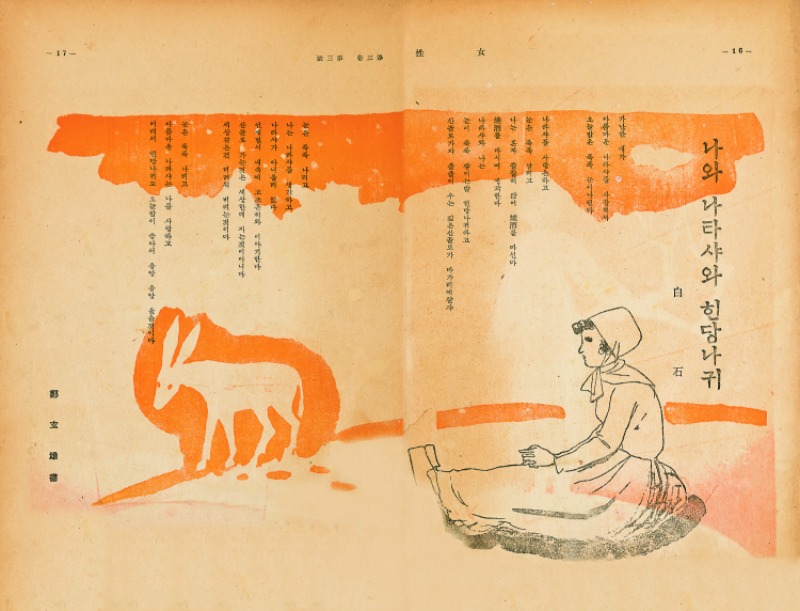 — 16 —
女性
第三卷 第三號
— 17 —
나와 나타샤와 힌당나귀
白石
가난한 내가
아름다운 나타샤를 사랑해서
오늘밤은 푹푹 눈이나린다
나타샤를 사랑은하고
눈은 푹푹 날리고
나는 혼자 쓸쓸히 앉어 燒酒를 마신다
燒酒를 마시며 생각한다
나타샤와 나는
눈이 푹푹 쌓이는밤 힌당나귀타고
산골로가쟈 출출이 우는 깊은산골로가 마가리에살쟈
눈은 푹푹 나리고
나는 나타샤를 생각하고
나타샤가 아니올리 없다
언제벌서 내속에 고조곤히와 이야기한다
산골로 가는것은 세상한테 지는것이아니다
세상같은건 더러워 버리는것이다
눈은 푹푹 나리고
아름다운 나타샤는 나를 사랑하고
어데서 힌당나귀도 오늘밤이 좋아서 응앙 응앙 울을것이다
鄭玄雄畵